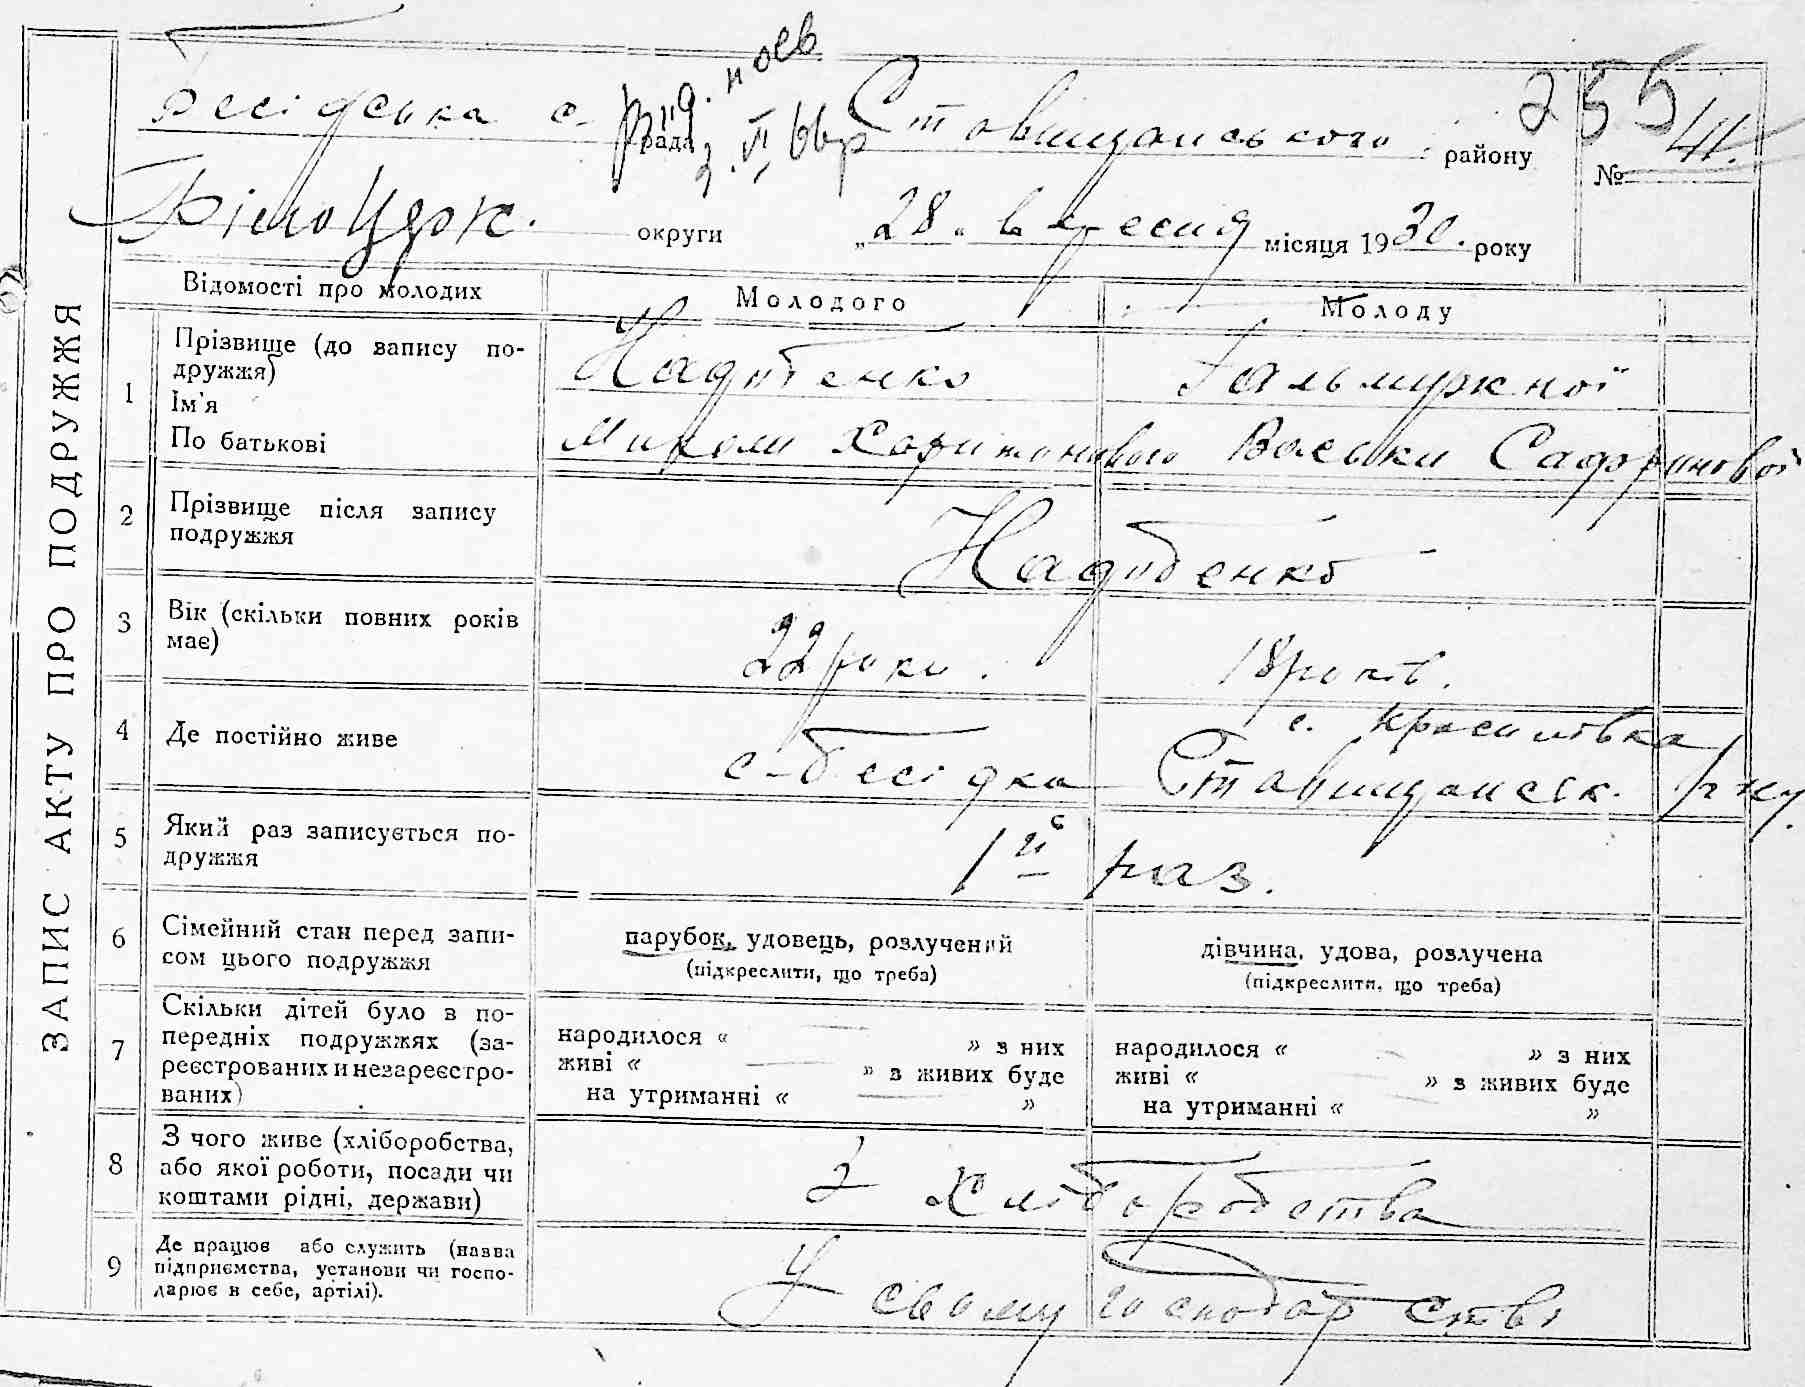 255
Бесідська с- рада Ставищанського району № 41.
Білоцерк. округи „28„ вересня місяця 1930. року
ЗАПИС АКТУ ПРО ПОДРУЖЖЯ
Відомості про молодих Молодого Молоду
1 Прізвище (до запису по-
дружжя)
Ім'я
По батькові
Надобенко
Миколи Харитонового
Васьки
2 Прізвище після запису
подружжя
Надобенко
3 Вік (скільки повних років
має)
22 роки.
18 років.
4 Де постійно живе
с-Бесідка
с. Красилівка
Ставищанськ. р-ну.
5 Який раз записується по-
дружжя
1й раз.
6 Сімейний стан перед запи-
сом цього подружжя
парубок, удовець, розлучений
(підкреслити, що треба)
дівчина, удова, розлучена
(підкреслити, що треба)
7 Скільки дітей було в по-
передніх подружжях (за-
реєстрованих и незареєстро-
ваних)
народилося « — » з них
живі « — » з живих буде
на утриманні « — »
народилося « — » з них
живі « — » з живих буде
на утриманні « — »
8 З чого живе (хліборобства,
або якої роботи, посади чи
коштами рідні, держави)
З хліборобства
9 Де працює або служить (назва
підприємства, установи чи госпо-
дарює в себе, артілі).
У своему господарстві